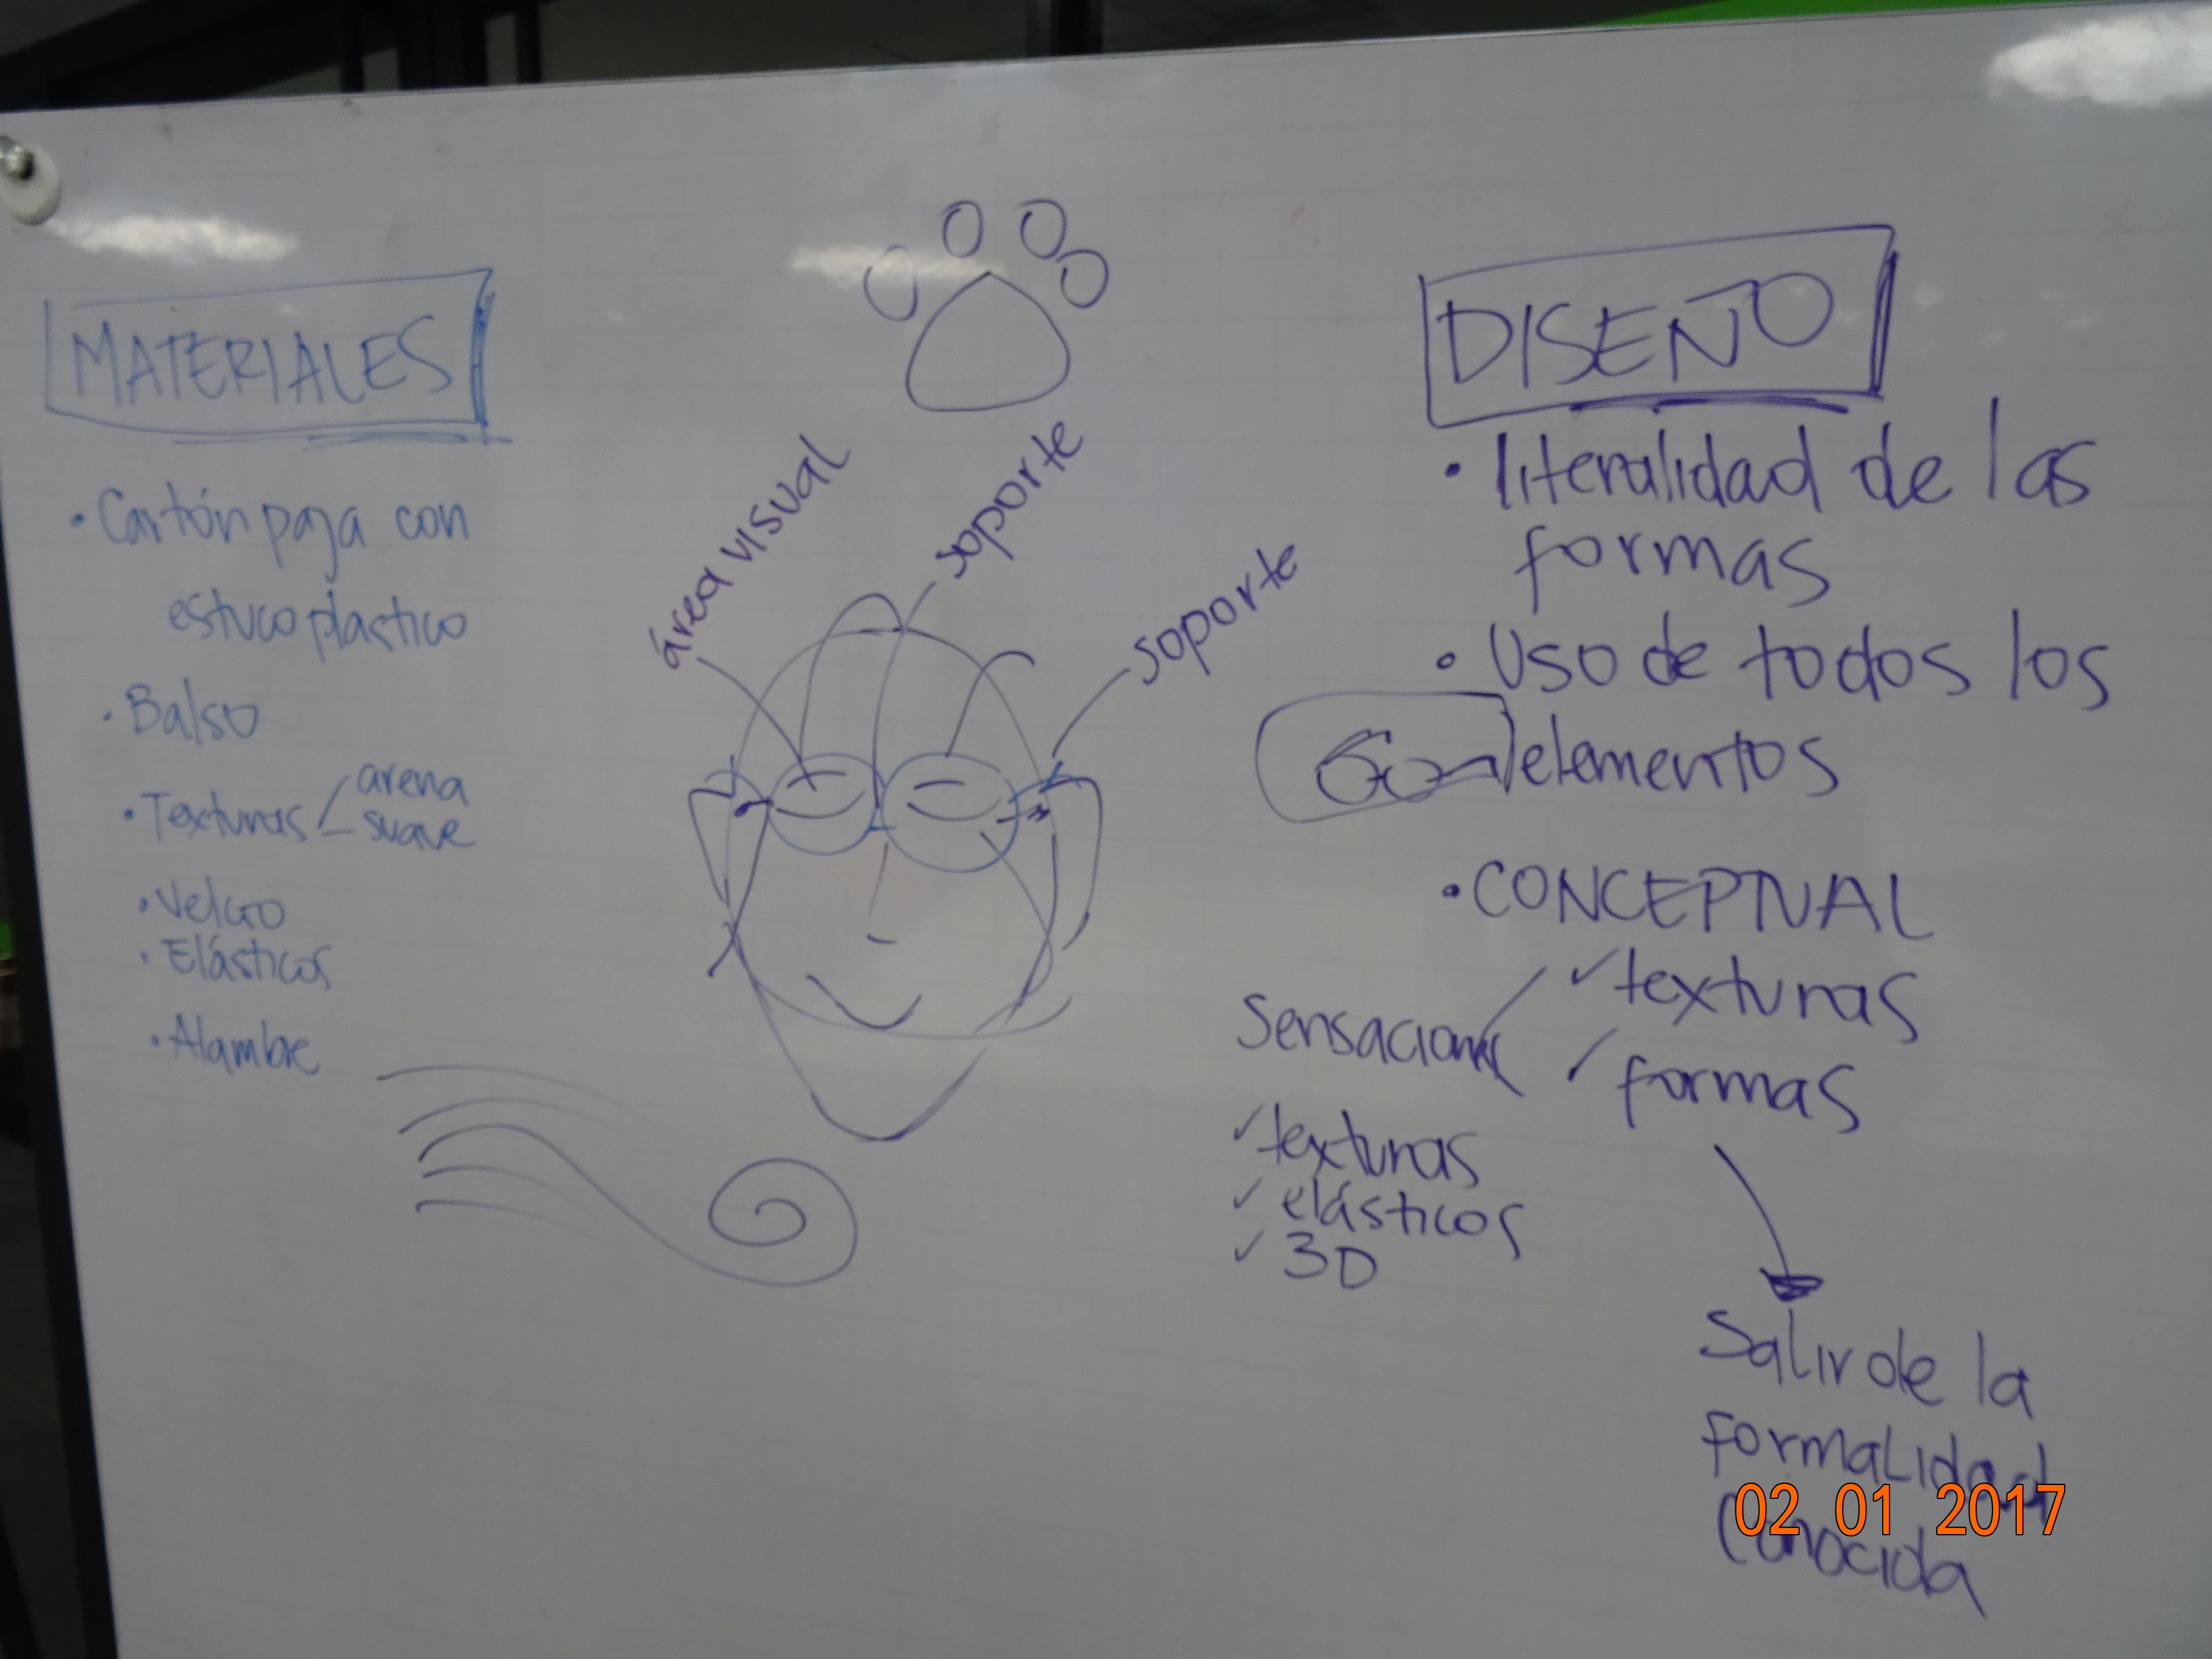 MATERIALES
• Cartón paja con
estuco plastico
• Balso
• Texturas
arena
suave
• Velcro
• Elásticos
• Alambre
área visual
soporte
soporte
DISEÑO
• literalidad de las
formas
• Uso de todos los
elementos
• CONCEPTUAL
✓ texturas
✓ formas
Sensaciones
✓ texturas
✓ elásticos
✓ 3D
Salir de la
formalidad
Conocida
02 01 2017